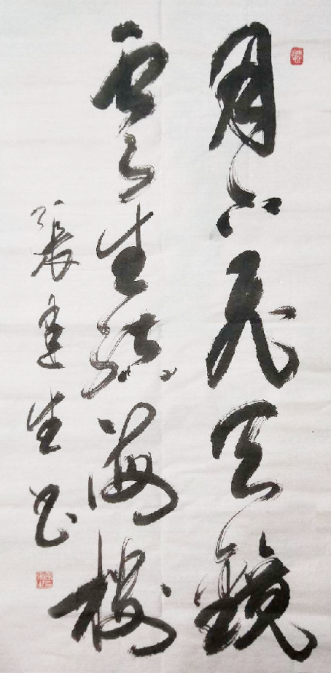 月下飞天镜
云生结海楼
张建生书